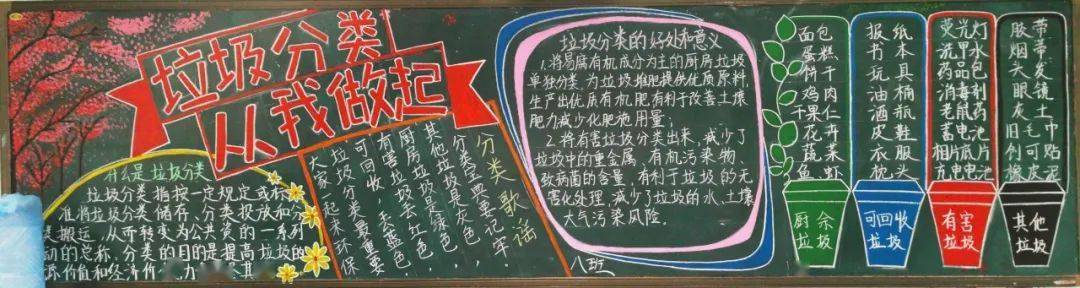 垃圾分类
从我做起
什么是垃圾分类
垃圾分类指按一定规定或标
准将垃圾分类储存、分类投放和分
类搬运,从而转变为公共资的一系列
动的总称,分类的目的是提高垃圾的
源价值和经济价 力 其
分类歌谣
分类宝典要记牢,
其他垃圾是灰色,
厨房垃圾是绿色,
有害垃圾去红色,
可回收,丢蓝色,
垃圾分类最重要,
大家一起来环保
八班
垃圾分类的好处和意义
1.将易腐有机成分为主的厨房垃圾
单独分类,为垃圾堆肥提供优质原料,
生产出优质有机肥,有利于改善土壤
肥力,减少化肥施用量;
2.将有害垃圾分类出来,减少了
垃圾中的重金属、有机污染物、
致病菌的含量,有利于垃圾的无
害化处理,减少了垃圾的水、土壤、
大气污染风险。
面包
蛋糕
饼干
鸡肉
干果仁
花卉
蔬菜
鱼虾
厨余
垃圾
报纸
书本
玩具
油桶
酒瓶
皮鞋
衣服
枕头
可回收
垃圾
荧光灯
洗甲水
药品包
消毒剂
老鼠药
蓄电池
相片底片
充电电池
有害
垃圾
胶带
烟蒂
头发
眼镜
灰土
旧毛巾
创可贴
橡皮泥
其他
垃圾